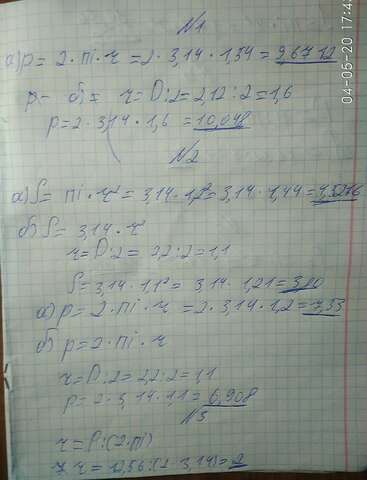 №1
а) p = 2 · пі · r = 2 · 3,14 · 1,34 =
р- б) = r = D:2 = 2,12 : 2 = 1,6
p = 2 · 3,14 · 1,6 = 10,048
№2
а) S = пі · r² = 3,14 · 1,2² = 3,14 · 1,44 =
б) S = 3,14 · r²
r = D:2 = 2,2:2 = 1,1
S = 3,14 · 1,1² = 3,14 · 1,21 = 3,80
а) p = 2 · пі · r = 2 · 3,14 · 1,2 = 7,53
б) p = 2 · пі · r
r = D:2 = 2,2:2 = 1,1
p = 2 · 3,14 · 1,1 = 6,908
№3
r = P:(2·пі)
r = 12,56:(2 · 3,14) = 2
04-05-20 17:4